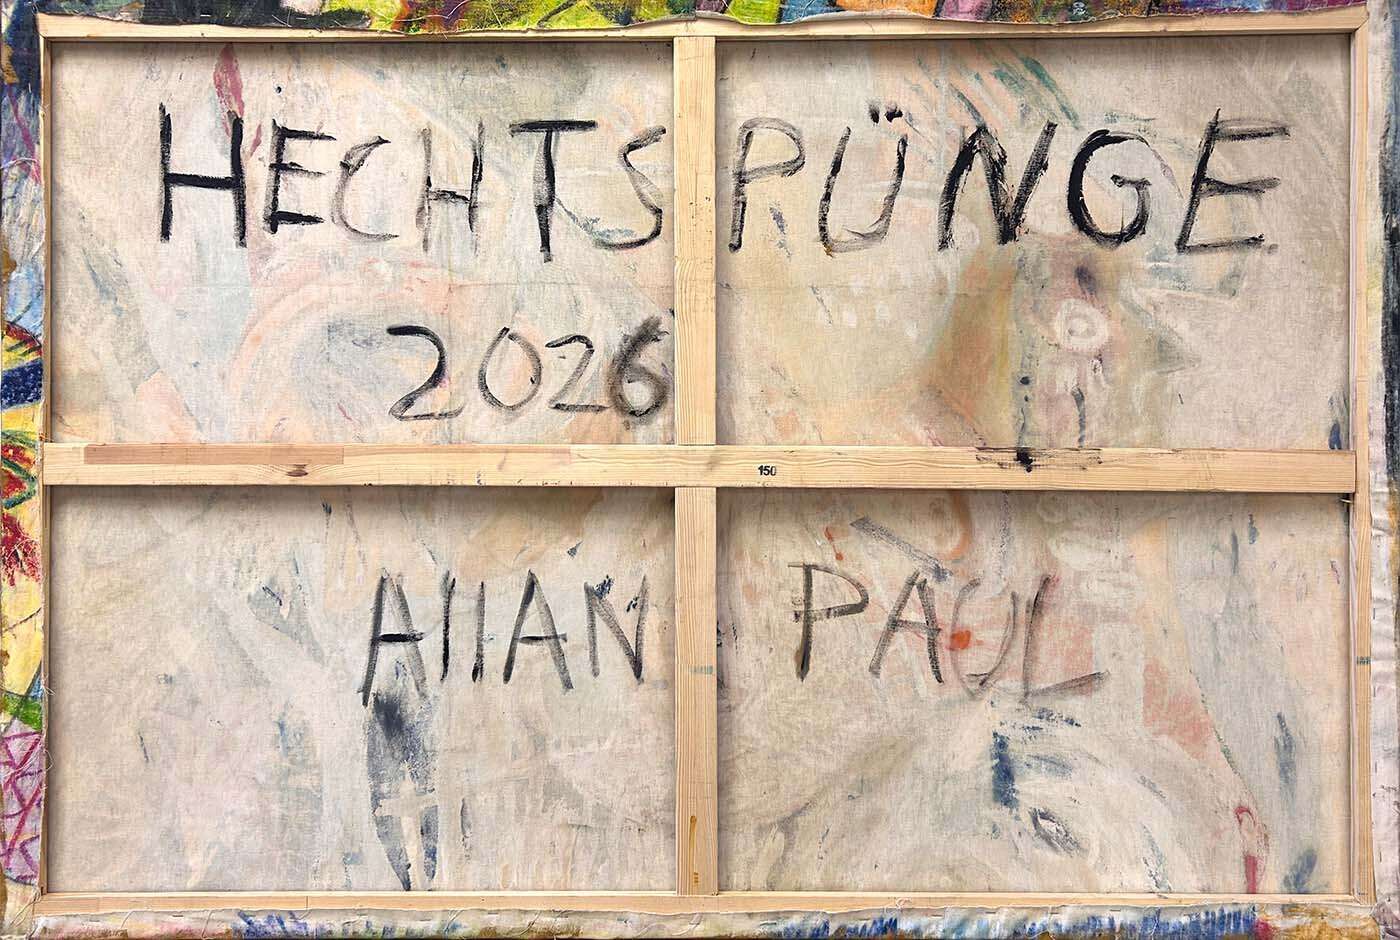 HECHTSPÜNGE
2026
150
AllAN PAUL